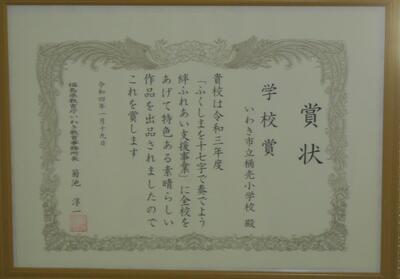 賞状
学校賞
いわき市立桶売小学校 殿
貴校は令和三年度
「ふくしまを十七字で奏でよう
絆ふれあい支援事業」に全校を
あげて特色ある素晴らしい
作品を出品されましたので
これを賞します
令和四年一月十九日
福島県教育庁いわき教育事務所長 菊池 淳一